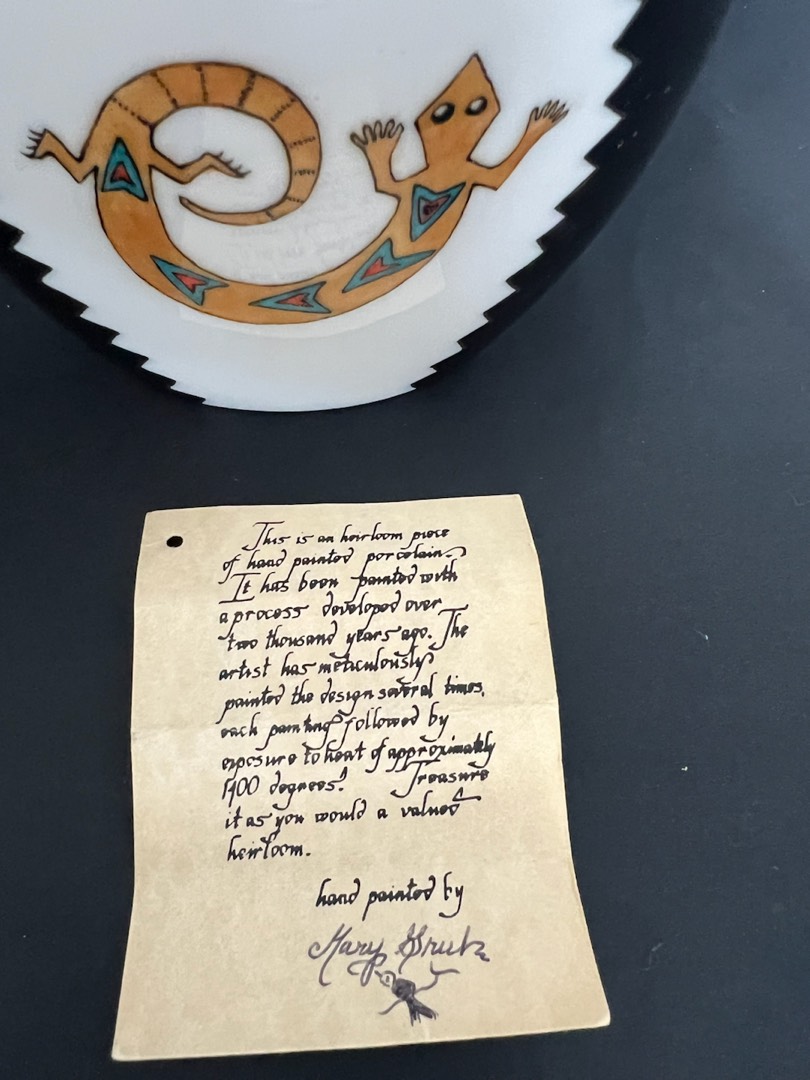 This is an heirloom piece
of hand painted porcelain.
It has been painted with
a process developed over
two thousand years ago. The
artist has meticulously
painted the design several times,
each painting followed by
exposure to heat of approximately
1400 degrees. Treasure
it as you would a valued
heirloom.
hand painted by
Mary